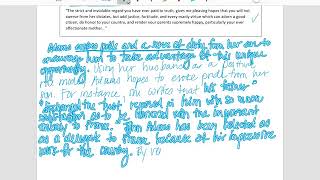 "The strict and inviolable regard you have ever paid to truth, gives me pleasing hopes that you will not
swerve from her dictates, but add justice, fortitude, and every manly virtue which can adorn a good
citizen, do honor to your country, and render your parents supremely happy, particularly your ever
affectionate mother..."
Adams evokes pride and a sense of duty from her son to
encourage him to take advantage of this unique
opportunity. Using her husband as a
role model Adams hopes to evoke pride from her
son. For instance, she writes that his father
"
satisfaction as to be honored with the important
embassy to France." John Adams has been selected as
as a delegate to France because of his impressive
work for the country. By re